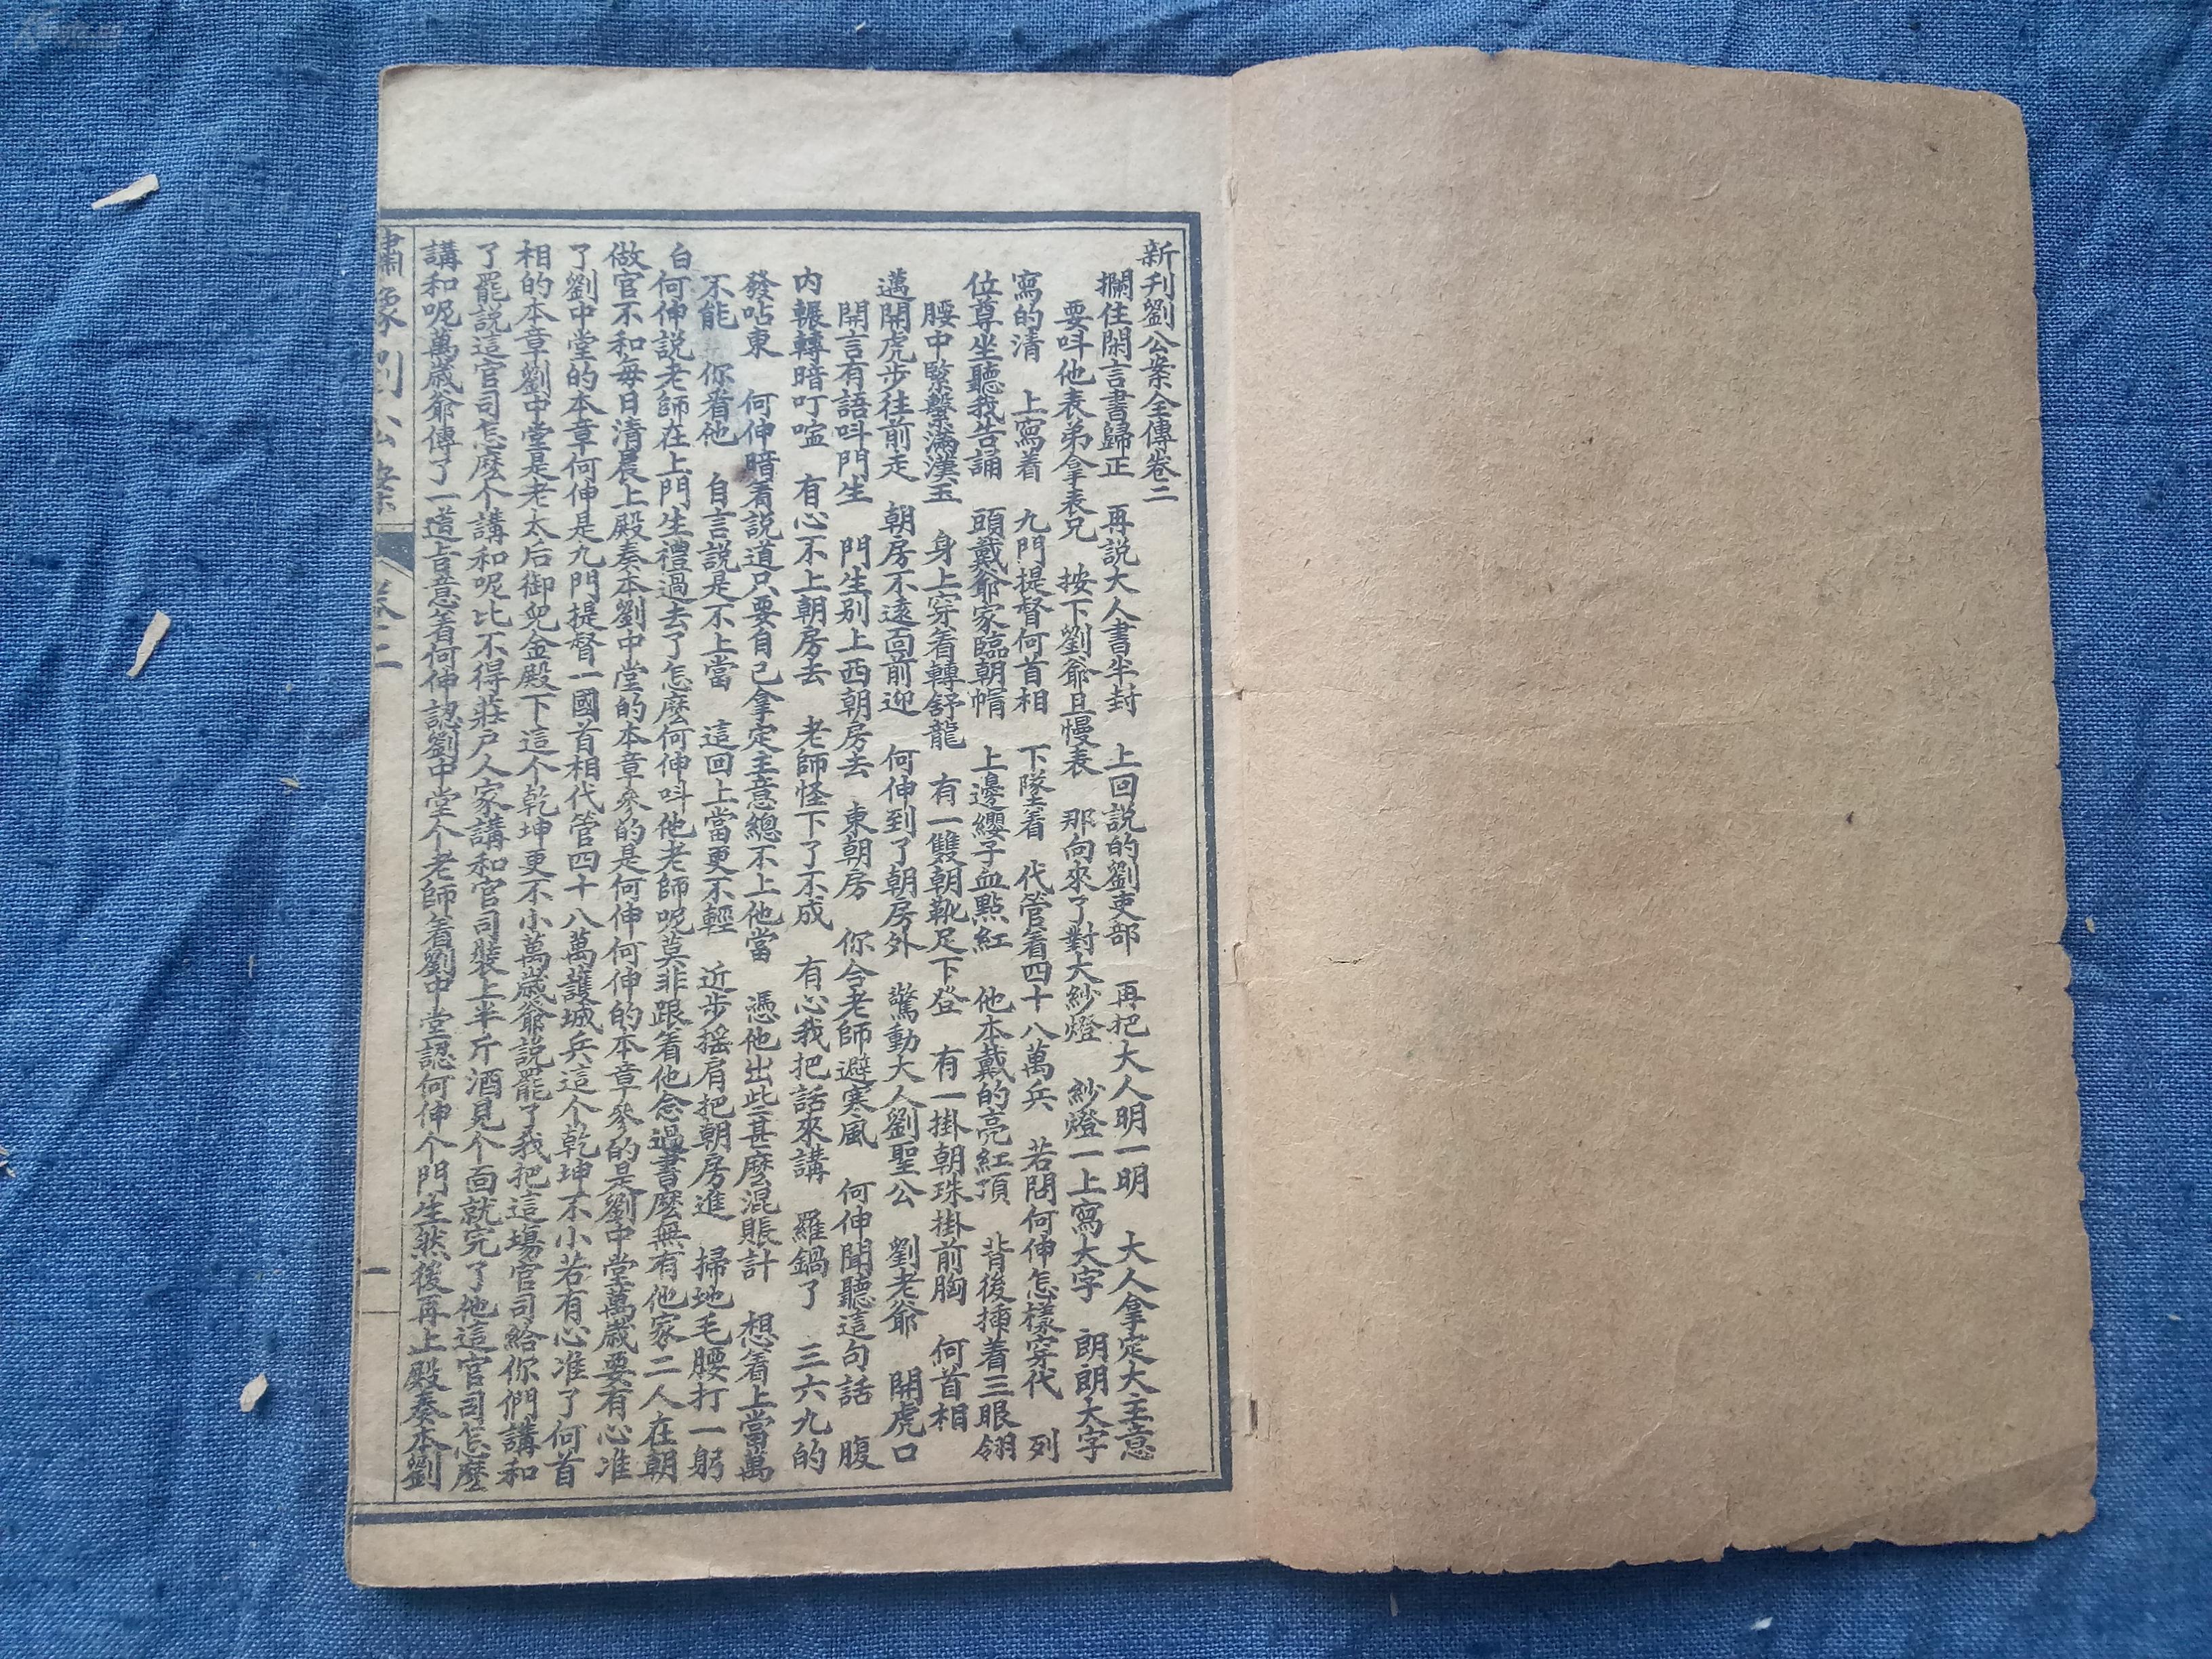 新刋劉公案全傳卷二
攔住閑言書歸正　再説大人書半封　上回説的劉吏部　再把大人明一明　大人拿定大主意
要呌他表弟拿表兄　按下劉爺且慢表　那向來了對大紗燈　紗燈一上寫大字　朗朗大字
寫的清　上寫着　九門提督何首相　下墜着　代管着四十八萬兵　若問何伸怎樣穿代　列
位尊坐聽我告誦　頭戴爺家臨朝帽　上邊纓子血點紅　他本戴的亮紅頂　背後揷着三眼翎
腰中緊繫滿漢玉　身上穿着轉舒龍　有一雙朝靴足下登　有一掛朝珠掛前胸　何首相
邁開虎步往前走　朝房不遠面前迎　何伸到了朝房外　驚動大人劉聖公　劉老爺　開虎口
開言有語呌門生　門生别上西朝房去　東朝房　你合老師避寒風　何伸聞聽這句話　腹
内輾轉暗叮嚀　有心不上朝房去　老師怪下了不成　有心我把話來講　羅鍋了　三六九的
發呫東　何伸暗着説道只要自己拿定主意總不上他當　憑他出些甚麽混賬計　想着上當萬
不能　你看他　自言説是不上當　這回上當更不輕　近步摇肩把朝房進　掃地毛腰打一躬
白何伸説老師在上門生禮過去了怎麽何伸呌他老師呢莫非跟着他念過書麽無有他家二人在朝
做官不和每日清晨上殿奏本劉中堂的本章叅的是何伸何伸的本章叅的是劉中堂萬歲要有心准
了劉中堂的本章何伸是九門提督一國首相代管四十八萬護城兵這个乾坤不小若有心准了何首
相的本章劉中堂是老太后御兒金殿下這个乾坤更不小萬歲爺説罷了我把這塲官司給你們講和
了罷説這官司怎麽个講和呢比不得莊户人家講和官司裝上半斤酒見个面就完了他這官司怎麽
講和呢萬歲爺傳了一道㫖意着何伸認劉中堂个老師着劉中堂認何伸个門生然後再上殿奏本劉
繡像劉公案　卷二　一